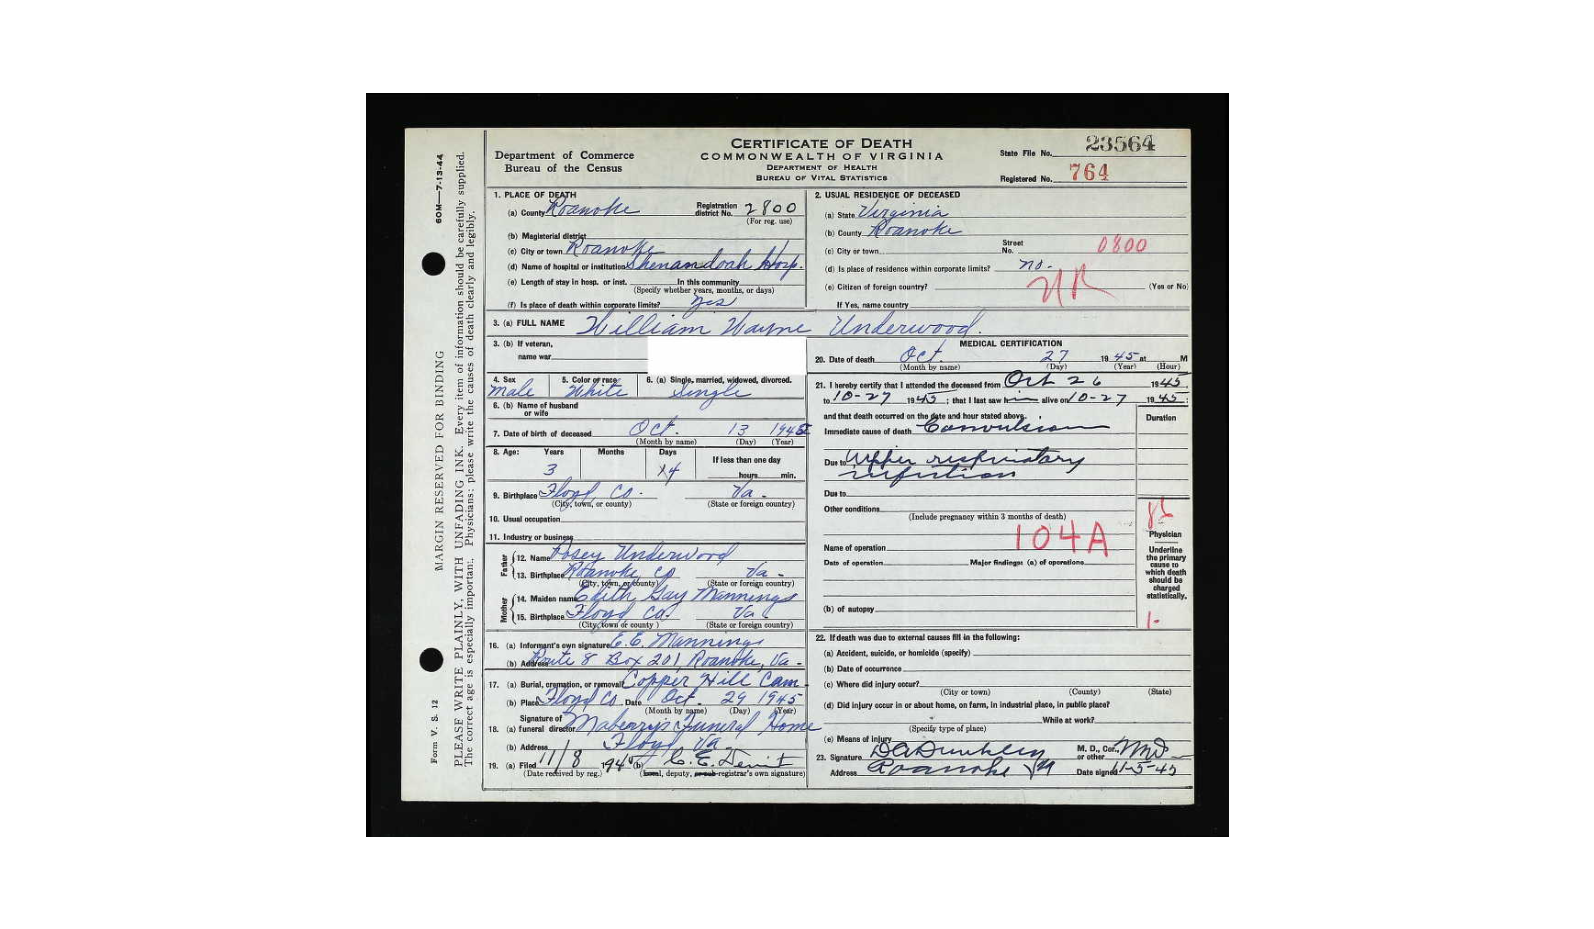 60M—7-13-44
MARGIN RESERVED FOR BINDING
PLEASE WRITE PLAINLY, WITH UNFADING INK. Every item of information should be carefully supplied.
The correct age is especially important. Physicians: please write the causes of death clearly and legibly.
Form V. S. 12
Department of Commerce
Bureau of the Census
CERTIFICATE OF DEATH
COMMONWEALTH OF VIRGINIA
DEPARTMENT OF HEALTH
BUREAU OF VITAL STATISTICS
State File No. 23564
Registered No. 764
1. PLACE OF DEATH
(a) County Roanoke Registration district No. 2800
(For reg. use)
(b) Magisterial district
(c) City or town Roanoke
(d) Name of hospital or institution Shenandoah Hosp.
(e) Length of stay in hosp. or inst. In this community
(Specify whether years, months, or days)
(f) Is place of death within corporate limits? Yes
2. USUAL RESIDENCE OF DECEASED
(a) State Virginia
(b) County Roanoke
(c) City or town Street No. 0800
(d) Is place of residence within corporate limits? no.
(e) Citizen of foreign country? (Yes or No)
If Yes, name country
NR
3. (a) FULL NAME William Wayne Underwood.
3. (b) If veteran,
name war
4. Sex Male 5. Color or race White 6. (a) Single, married, widowed, divorced. Single
6. (b) Name of husband
or wife
7. Date of birth of deceased Oct. 13
(Month by name) (Day) (Year)
8. Age: Years Months Days If less than one day
3 14 hours min.
9. Birthplace Floyd Co. Va.
(City, town, or county) (State or foreign country)
10. Usual occupation
11. Industry or business
Father
12. Name Posey Underwood
13. Birthplace Roanoke Co Va.
(City, town, or county) (State or foreign country)
Mother
14. Maiden name Edith Gay Mannings
15. Birthplace Floyd Co. Va.
(City, town or county) (State or foreign country)
16. (a) Informant's own signature E.E. Mannings
(b) Address Route 8 Box 201, Roanoke, Va.
17. (a) Burial, cremation, or removal? Copper Hill Cem
(b) Place Floyd Co. Date Oct. 29 1945
(Month by name) (Day) (Year)
Signature of
18. (a) funeral director Maberry's Funeral Home
(b) Address Floyd, Va
19. (a) Filed 11/8 1945 (b) C.E.
(Date received by reg.) (local, deputy, or sub-registrar's own signature)
MEDICAL CERTIFICATION
20. Date of death Oct. 27 1945 at M
(Month by name) (Day) (Year) (Hour)
21. I hereby certify that I attended the deceased from Oct 26 1945,
to 10-27 1945; that I last saw him alive on 10-27 1945;
and that death occurred on the date and hour stated above. Duration
Immediate cause of death Convulsions
Due to Upper respiratory
infection
Due to
Other conditions
(Include pregnancy within 3 months of death)
104A
Name of operation
Date of operation Major findings: (a) of operations
(b) of autopsy
Physician
Underline
the primary
cause to
which death
should be
charged
statistically.
1-
22. If death was due to external causes fill in the following:
(a) Accident, suicide, or homicide (specify)
(b) Date of occurrence
(c) Where did injury occur?
(City or town) (County) (State)
(d) Did injury occur in or about home, on farm, in industrial place, in public place?
While at work?
(Specify type of place)
(e) Means of injury
23. Signature M. D., Cor., or other MD
Address Roanoke Va Date signed 11-5-45